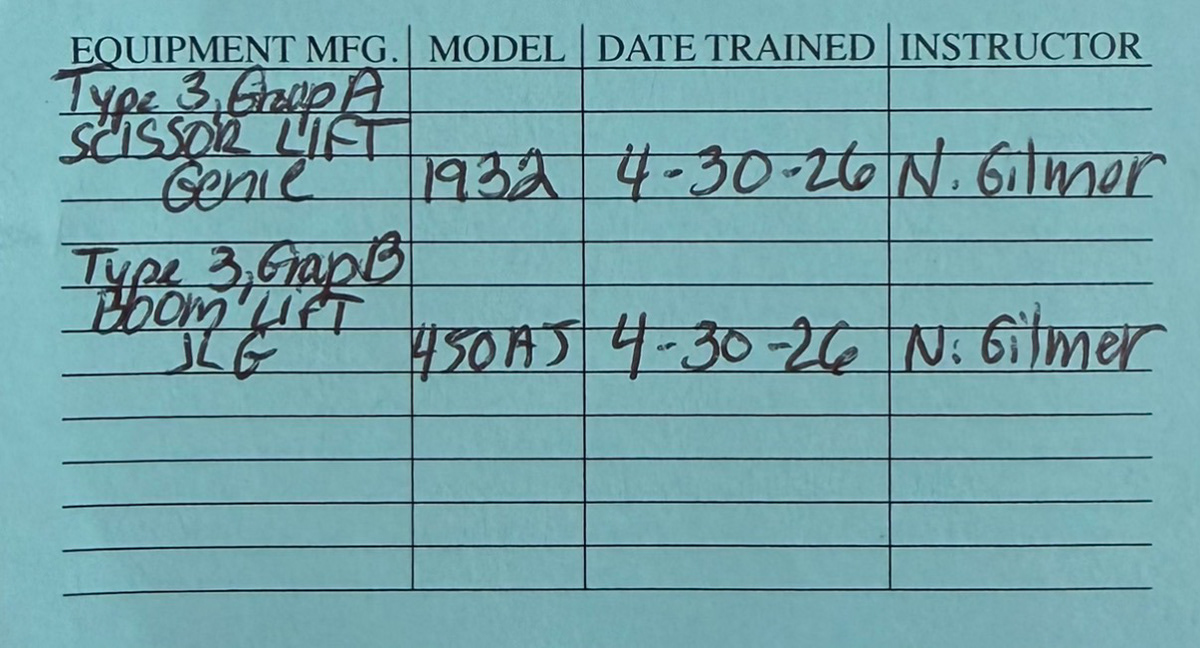 EQUIPMENT MFG. MODEL DATE TRAINED INSTRUCTOR
Type 3, Group A
SCISSOR LIFT
Genie 1932 4-30-26 N. Gilmer
Type 3, Group B
BOOM LIFT
JLG 450AJ 4-30-26 N. Gilmer